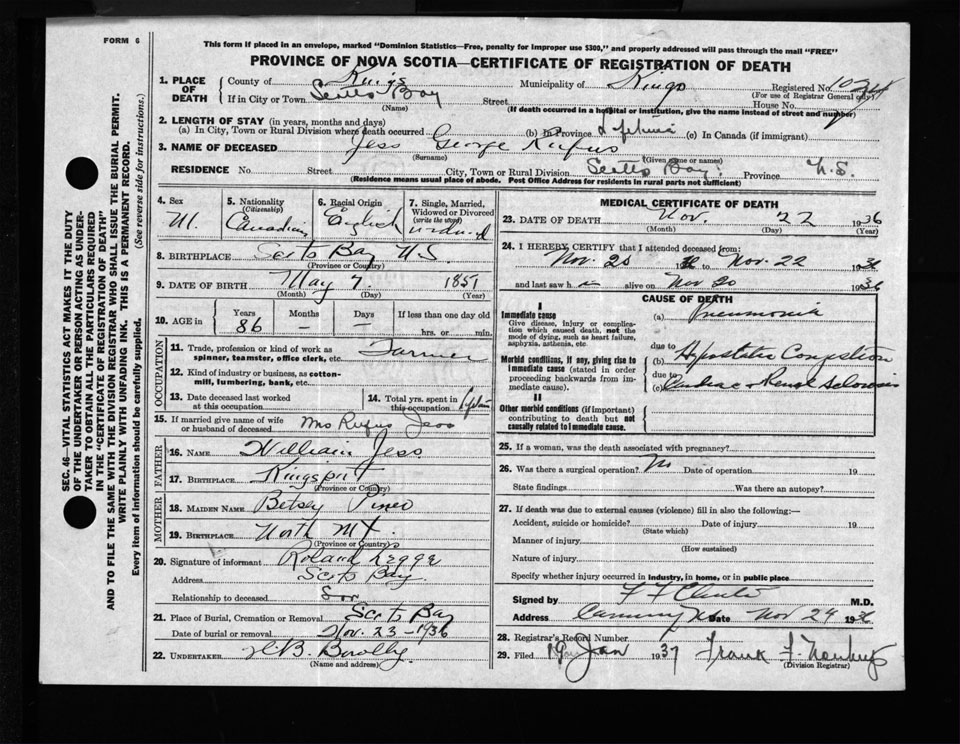 FORM 6
This form if placed in an envelope, marked "Dominion Statistics—Free, penalty for improper use $300," and properly addressed will pass through the mail "FREE"
PROVINCE OF NOVA SCOTIA—CERTIFICATE OF REGISTRATION OF DEATH
1. PLACE OF DEATH
County of Kings Municipality of Kings Registered No.
(For use of Registrar General only)
If in City or Town Scotts Bay Street House No.
(Name) (If death occurred in a hospital or institution, give the name instead of street and number)
2. LENGTH OF STAY (in years, months and days)
(a) In City, Town or Rural Division where death occurred (b) In Province Lifetime (c) In Canada (if immigrant)
3. NAME OF DECEASED Jess George Rufus
(Surname) (Given name or names)
RESIDENCE No. Street City, Town or Rural Division Scotts Bay Province N.S.
(Residence means usual place of abode. Post Office Address for residents in rural parts not sufficient)
4. Sex M.
5. Nationality (Citizenship) Canadian
6. Racial Origin English
7. Single, Married, Widowed or Divorced (write the word) widowed
8. BIRTHPLACE Scots Bay N.S.
(Province or Country)
9. DATE OF BIRTH May 7. 1851
(Month) (Day) (Year)
10. AGE in Years 86 Months – Days – If less than one day old hrs. or min.
OCCUPATION
11. Trade, profession or kind of work as spinner, teamster, office clerk, etc. Farmer
12. Kind of industry or business, as cotton-mill, lumbering, bank, etc.
13. Date deceased last worked at this occupation
14. Total yrs. spent in this occupation
15. If married give name of wife or husband of deceased Mrs Rufus Jess
FATHER
16. NAME William Jess
17. BIRTHPLACE Kingsport
(Province or Country)
MOTHER
18. MAIDEN NAME Betsey Pineo
19. BIRTHPLACE North Mt.
(Province or Country)
20. Signature of informant Roland Legge
Address Scots Bay
Relationship to deceased Son
21. Place of Burial, Cremation or Removal Scots Bay
Date of burial or removal Nov. 23 – 1936
22. UNDERTAKER
(Name and address)
MEDICAL CERTIFICATE OF DEATH
23. DATE OF DEATH Nov. 22 1936
(Month) (Day) (Year)
24. I HEREBY CERTIFY that I attended deceased from:
Nov. 20 to Nov. 22 1936
and last saw h alive on Nov 20 1936
CAUSE OF DEATH
I
Immediate cause
Give disease, injury or complication which caused death, not the mode of dying, such as heart failure, asphyxia, asthenia, etc.
(a) Pneumonia
due to
Morbid conditions, if any, giving rise to immediate cause (stated in order proceeding backwards from immediate cause).
(b) Hypostatic Congestion
due to
(c) Cardiac & Renal sclerosis
II
Other morbid conditions (if important) contributing to death but not causally related to immediate cause.
25. If a woman, was the death associated with pregnancy?
26. Was there a surgical operation? No Date of operation 19
State findings Was there an autopsy?
27. If death was due to external causes (violence) fill in also the following:—
Accident, suicide or homicide? Date of injury 19
(State which)
Manner of injury
(How sustained)
Nature of injury
Specify whether injury occurred in industry, in home, or in public place
Signed by M.D.
Address Canning NS Date Nov 24 1936
28. Registrar's Record Number
29. Filed 19 Jan 1937 Frank F.
(Division Registrar)
SEC. 46—VITAL STATISTICS ACT MAKES IT THE DUTY OF THE UNDERTAKER OR PERSON ACTING AS UNDERTAKER TO OBTAIN ALL THE PARTICULARS REQUIRED IN THE "CERTIFICATE OF REGISTRATION OF DEATH" AND TO FILE THE SAME WITH THE DIVISION REGISTRAR WHO SHALL ISSUE THE BURIAL PERMIT.
WRITE PLAINLY WITH UNFADING INK. THIS IS A PERMANENT RECORD.
Every item of information should be carefully supplied. (See reverse side for instructions.)